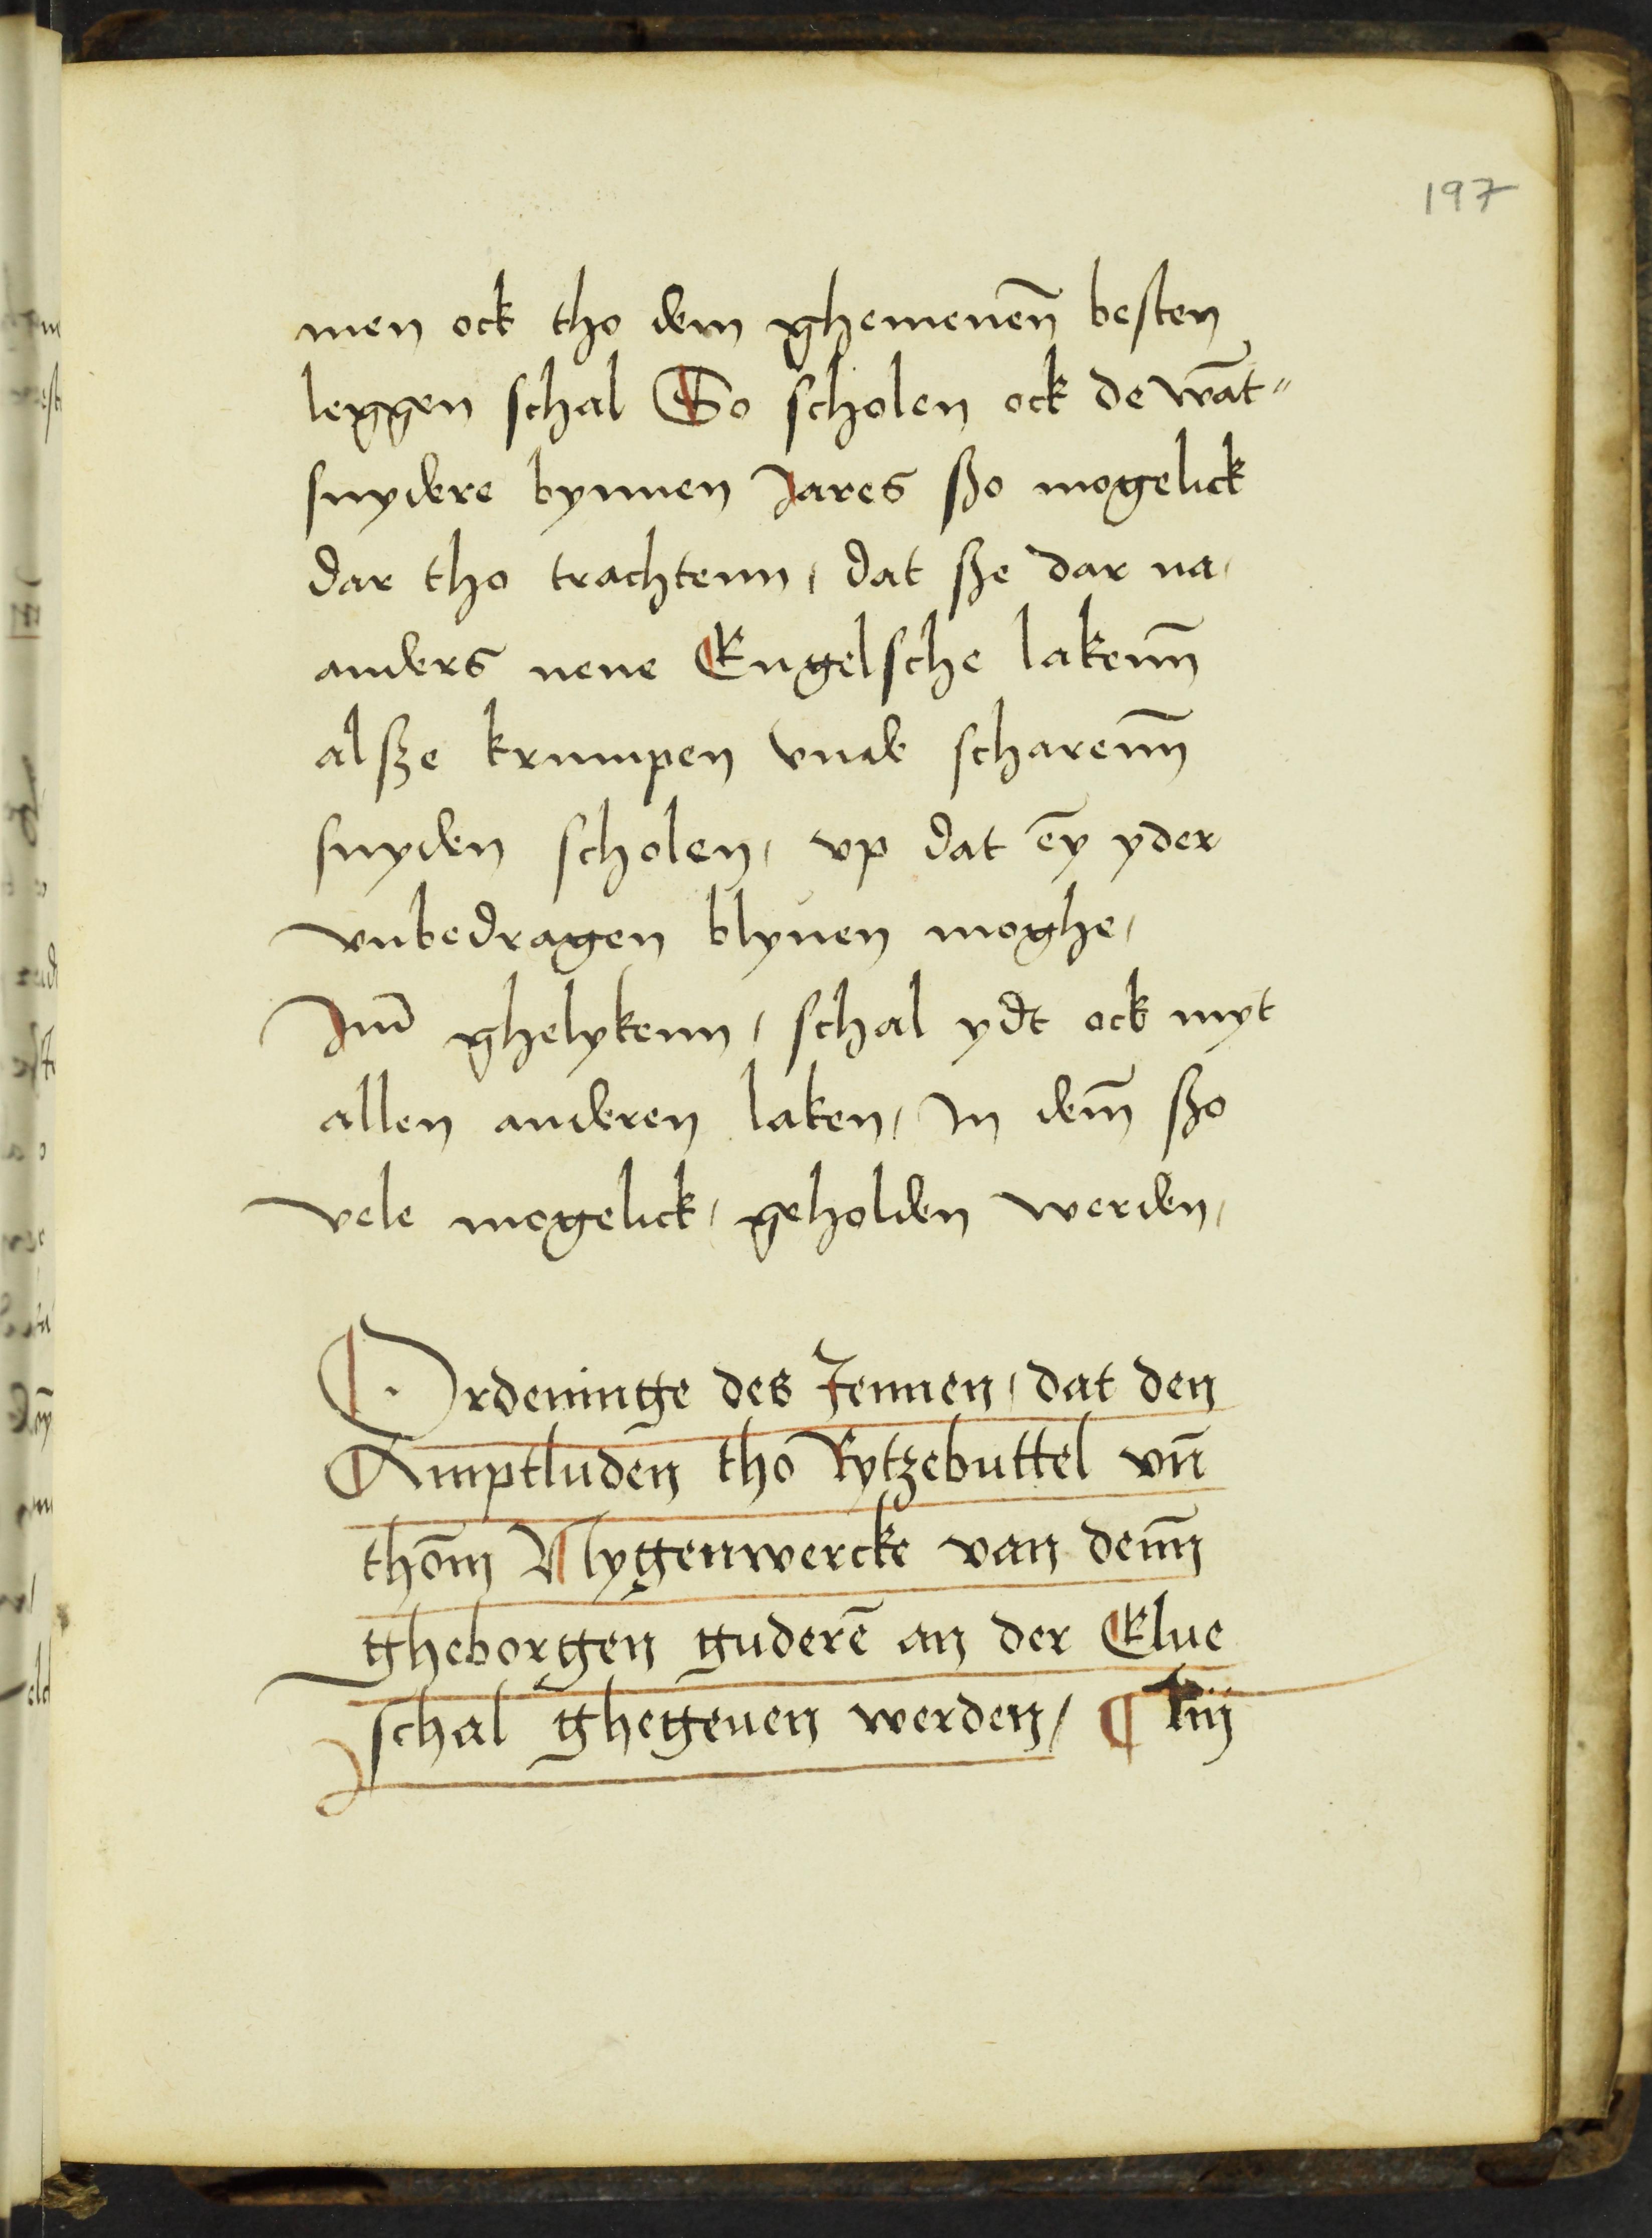 197
men ock tho dem ghemenen̄ besten
leggen schal So scholen ock de wāt〃
snydere bynnen Jares ßo mogelick
dar tho trachtenn / dat ße dar na /
anders nene Engelsche lakenn̄
alße krumpen vnde scharenn̄
snyden scholen / vp dat eȳ yder
vnbedragen blyuen moghe /
Jm̄ ghelykenn / schal ydt ock myt
allen anderen laken / Jn dem̄ ßo
vele mogelick / geholden werden /
Ordeninge des Jennen / dat den
Amptludēn tho Rytzebuttel vn̄
thōm Nygenwercke van denn̄
gheborgen guderē an der Elue
schal ghegeuen werden / ¶